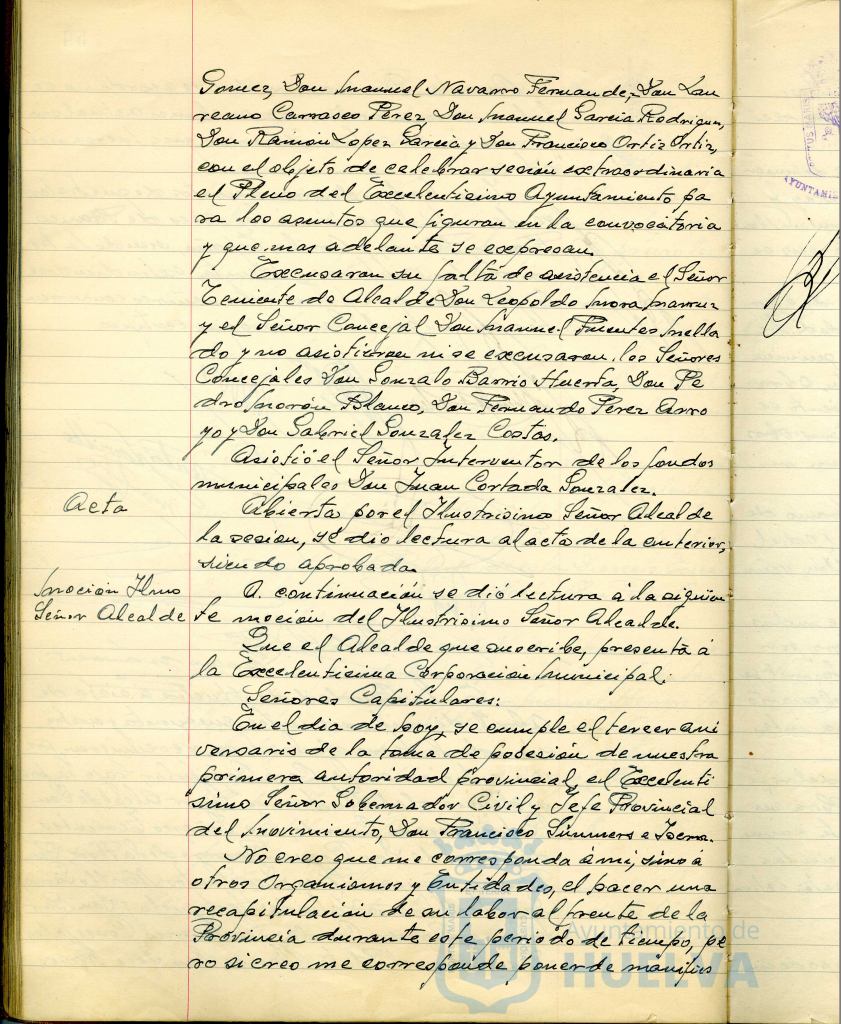 Gomez, Don Manuel Navarro Fernandez, Don Lau
reano Carrasco Perez, Don Manuel Garcia Rodriguez,
Don Ramón Lopez Garcia y Don Francisco Ortiz Ortiz,
con el objeto de celebrar sesión extraordinaria
el Pleno del Excelentisimo Ayuntamiento pa
ra los asuntos que figuran en la convocatoria
y que mas adelante se expresan.
Excusaron su falta de asistencia el Señor
Teniente de Alcalde Don Leopoldo Mora
y el Señor Concejal Don Manuel Fuentes Mella
do y no asistieron ni se excusaron, los Señores
Concejales Don Gonzalo Barrio Huerta, Don Pe
dro Morón Blanco, Don Fernando Perez Arro
yo y Don Gabriel Gonzalez Costas.
Asistió el Señor Interventor de los fondos
municipales Don Juan Cortada Gonzalez.
Acta
Abierta por el Ilustrisimo Señor Alcalde
la sesion, se dio lectura al acta de la anterior,
siendo aprobada.
Moción Ilmo
Señor Alcalde
A continuación se dió lectura á la siguien
te moción del Ilustrisimo Señor Alcalde.
Que el Alcalde que suscribe, presenta á
la Excelentisima Corporación Municipal:
Señores Capitulares:
En el dia de hoy, se cumple el tercer ani
versario de la toma de posesión de nuestra
primera autoridad provincial, el Excelenti
simo Señor Gobernador Civil y Jefe Provincial
del Movimiento, Don Francisco Summers e Isern.
No creo que me corresponda á mi, sino á
otros Organismos y Entidades, el hacer una
recapitulación de su labor al frente de la
Provincia durante este periodo de tiempo, pe
ro si creo me corresponde poner de manifies
Ayuntamiento de
HUELVA